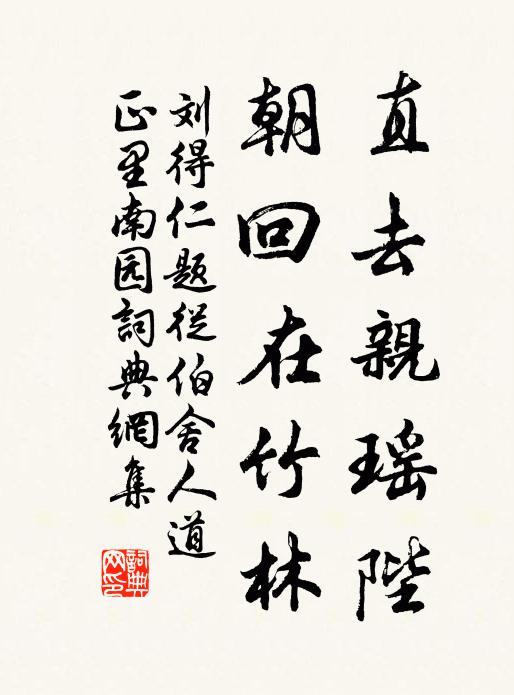 直去親瑶陛
朝回在竹林
刘得仁題從伯舍人道
正里南园詞典網集
詞典网印